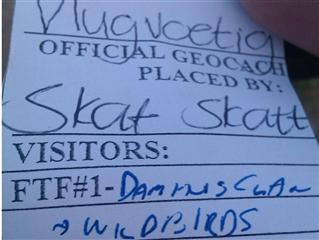 Vlugvoetig
OFFICIAL GEOCACH
PLACED BY:
Skat Skatt
VISITORS:
FTF#1-DAMTNSCLAN
→WILDBIRDS